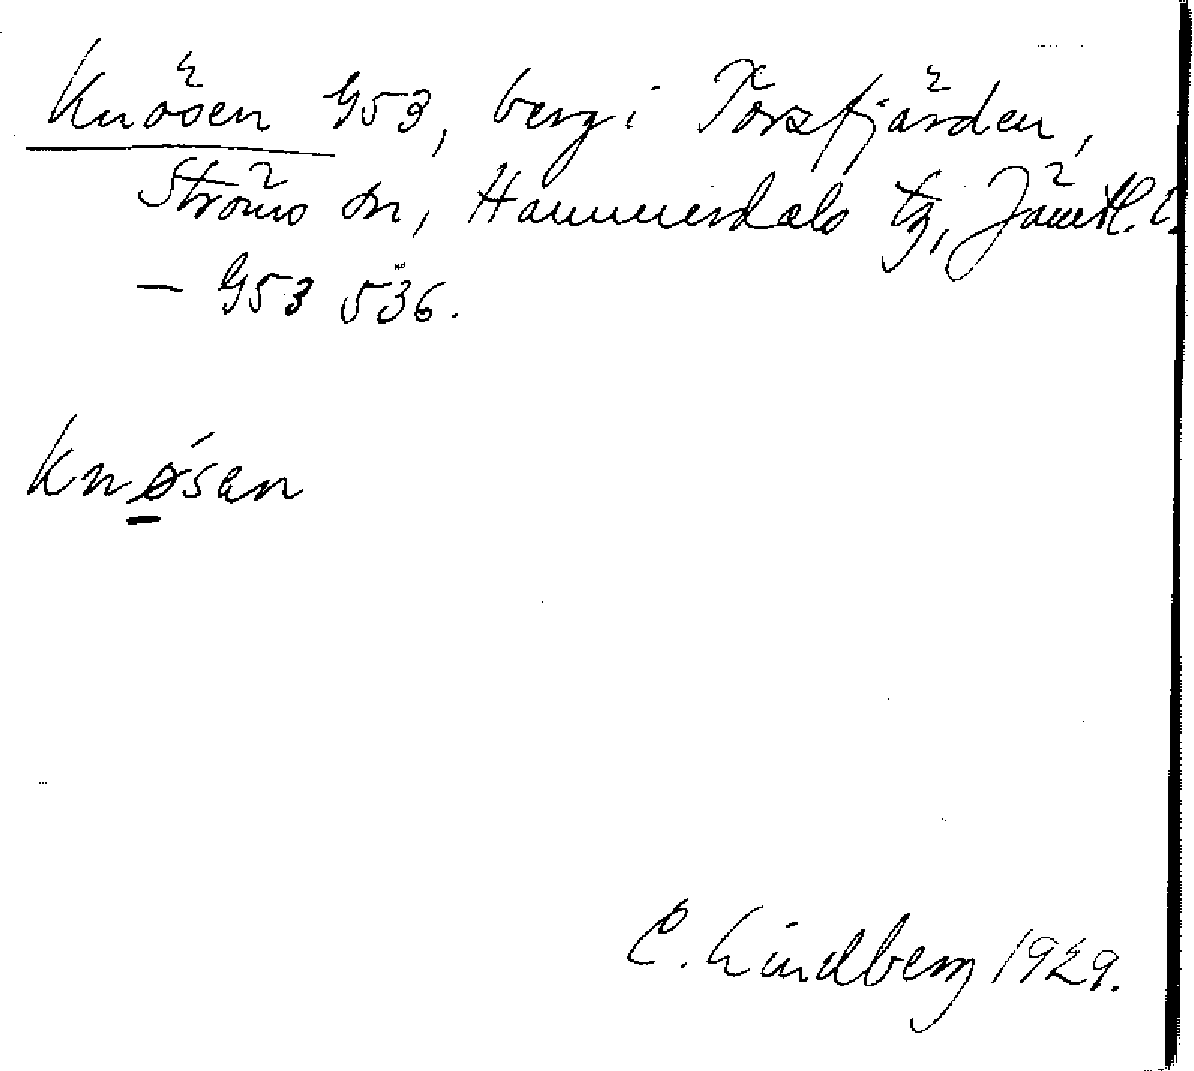 Knösen 953, berg i Torsfjärden,
Ströms sn, Hammerdals tg, Jämtl. l.
— 953 536.
Knǿ̱san
C. Lindberg 1929.